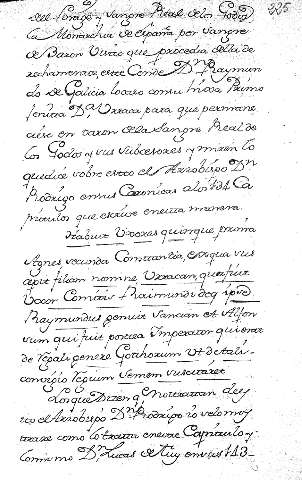 225
del Linage y Sangre Real de los Godos
la Monarchia de españa por sangre
de Baron Vino que procedia della de
rechamente, este Conde Dn Raymun
do de Galicia lo caso con su hixa Primo
jenita Da. Urraca para que permane
ciese en varon de la Sangre Real de
los Godos y sus subcesores y miren lo
que dice sobre esto el Arzobispo Dn
Rodrigo en sus Coronicas a los 134 Ca
pitulos que escrive en esta manera.
Habuit Uxores quinque prima
Agnes secunda Constantia, ex qua sus
cepit filiam nomine Urracan, que fuit
Uxor Comitis Raimundi de q ipse
Raymundus genuit Sanciam et Alfon
sum qui fuit postea Imperator qui erat
de regali genere Gothorum ut de tali
conjugio regum semen suscitaret
Lo que Dicen y Notiztan deys
to el Arzobispo Dn Rodrigo io velo muy
trase como lo trata en este Capitulo y
Como Dn Lucas de Tuy en sus 113